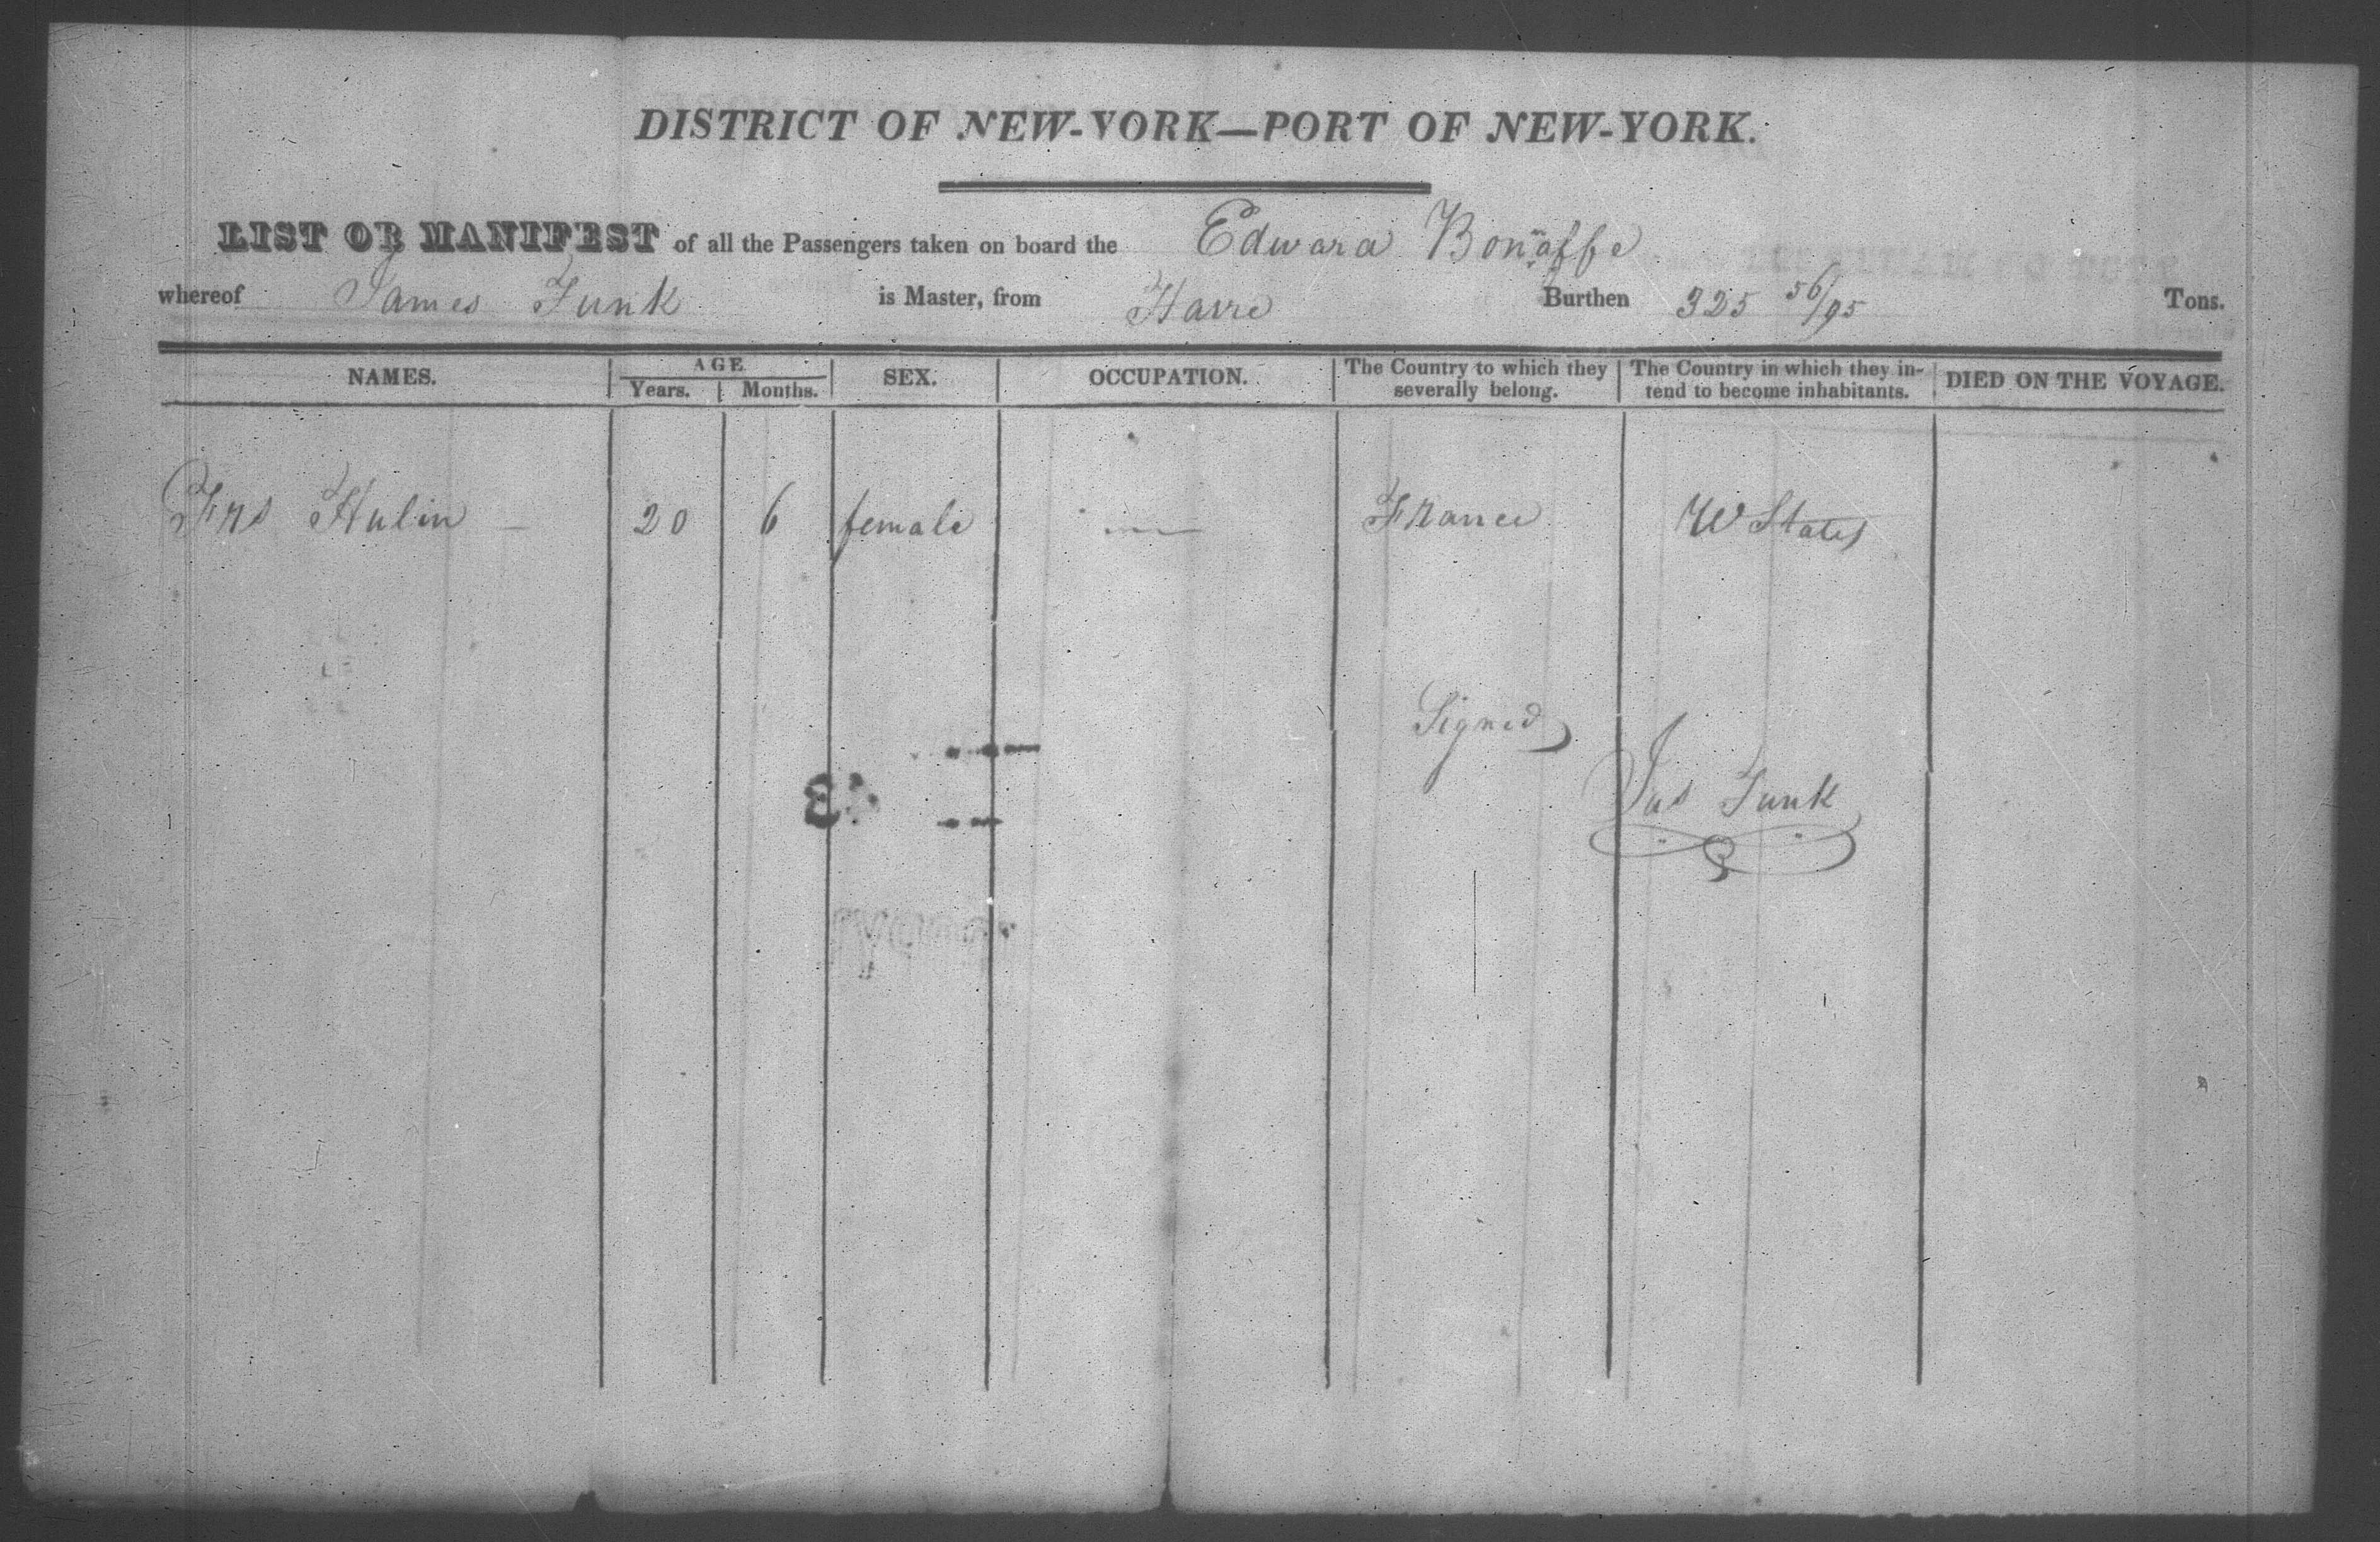 DISTRICT OF NEW-YORK—PORT OF NEW-YORK.
LIST OR MANIFEST of all the Passengers taken on board the Edward Bonnaffe
whereof James Funk is Master, from Havre Burthen 325 56/95 Tons.
NAMES. AGE Years. Months. SEX. OCCUPATION. The Country to which they severally belong. The Country in which they intend to become inhabitants. DIED ON THE VOYAGE.
Frs Hulin — 20 6 female — France U States
Signed
Jas Funk